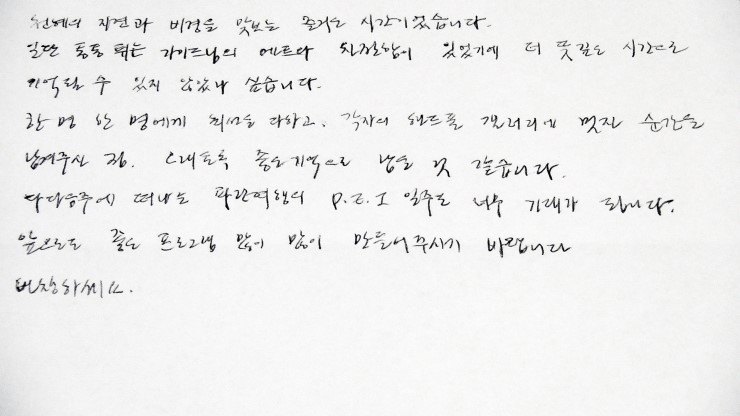 천혜의 자연과 비경을 맛보는 즐거운 시간이었습니다.
일단 통통 튀는 가이드님의 멘트와 친절함이 있었기에 더 뜻깊은 시간으로
기억될 수 있지 않았나 싶습니다.
한 명 한 명에게 최선을 다하고, 각자의 핸드폰 갤러리에 멋진 순간을
남겨주신 점. 오래토록 좋은기억으로 남을 것 같습니다.
다다음주에 떠나는 파란여행의 P.E.I 일주도 너무 기대가 됩니다.
앞으로도 좋은 프로그램 많이 많이 만들어주시기 바랍니다
번창하세요.